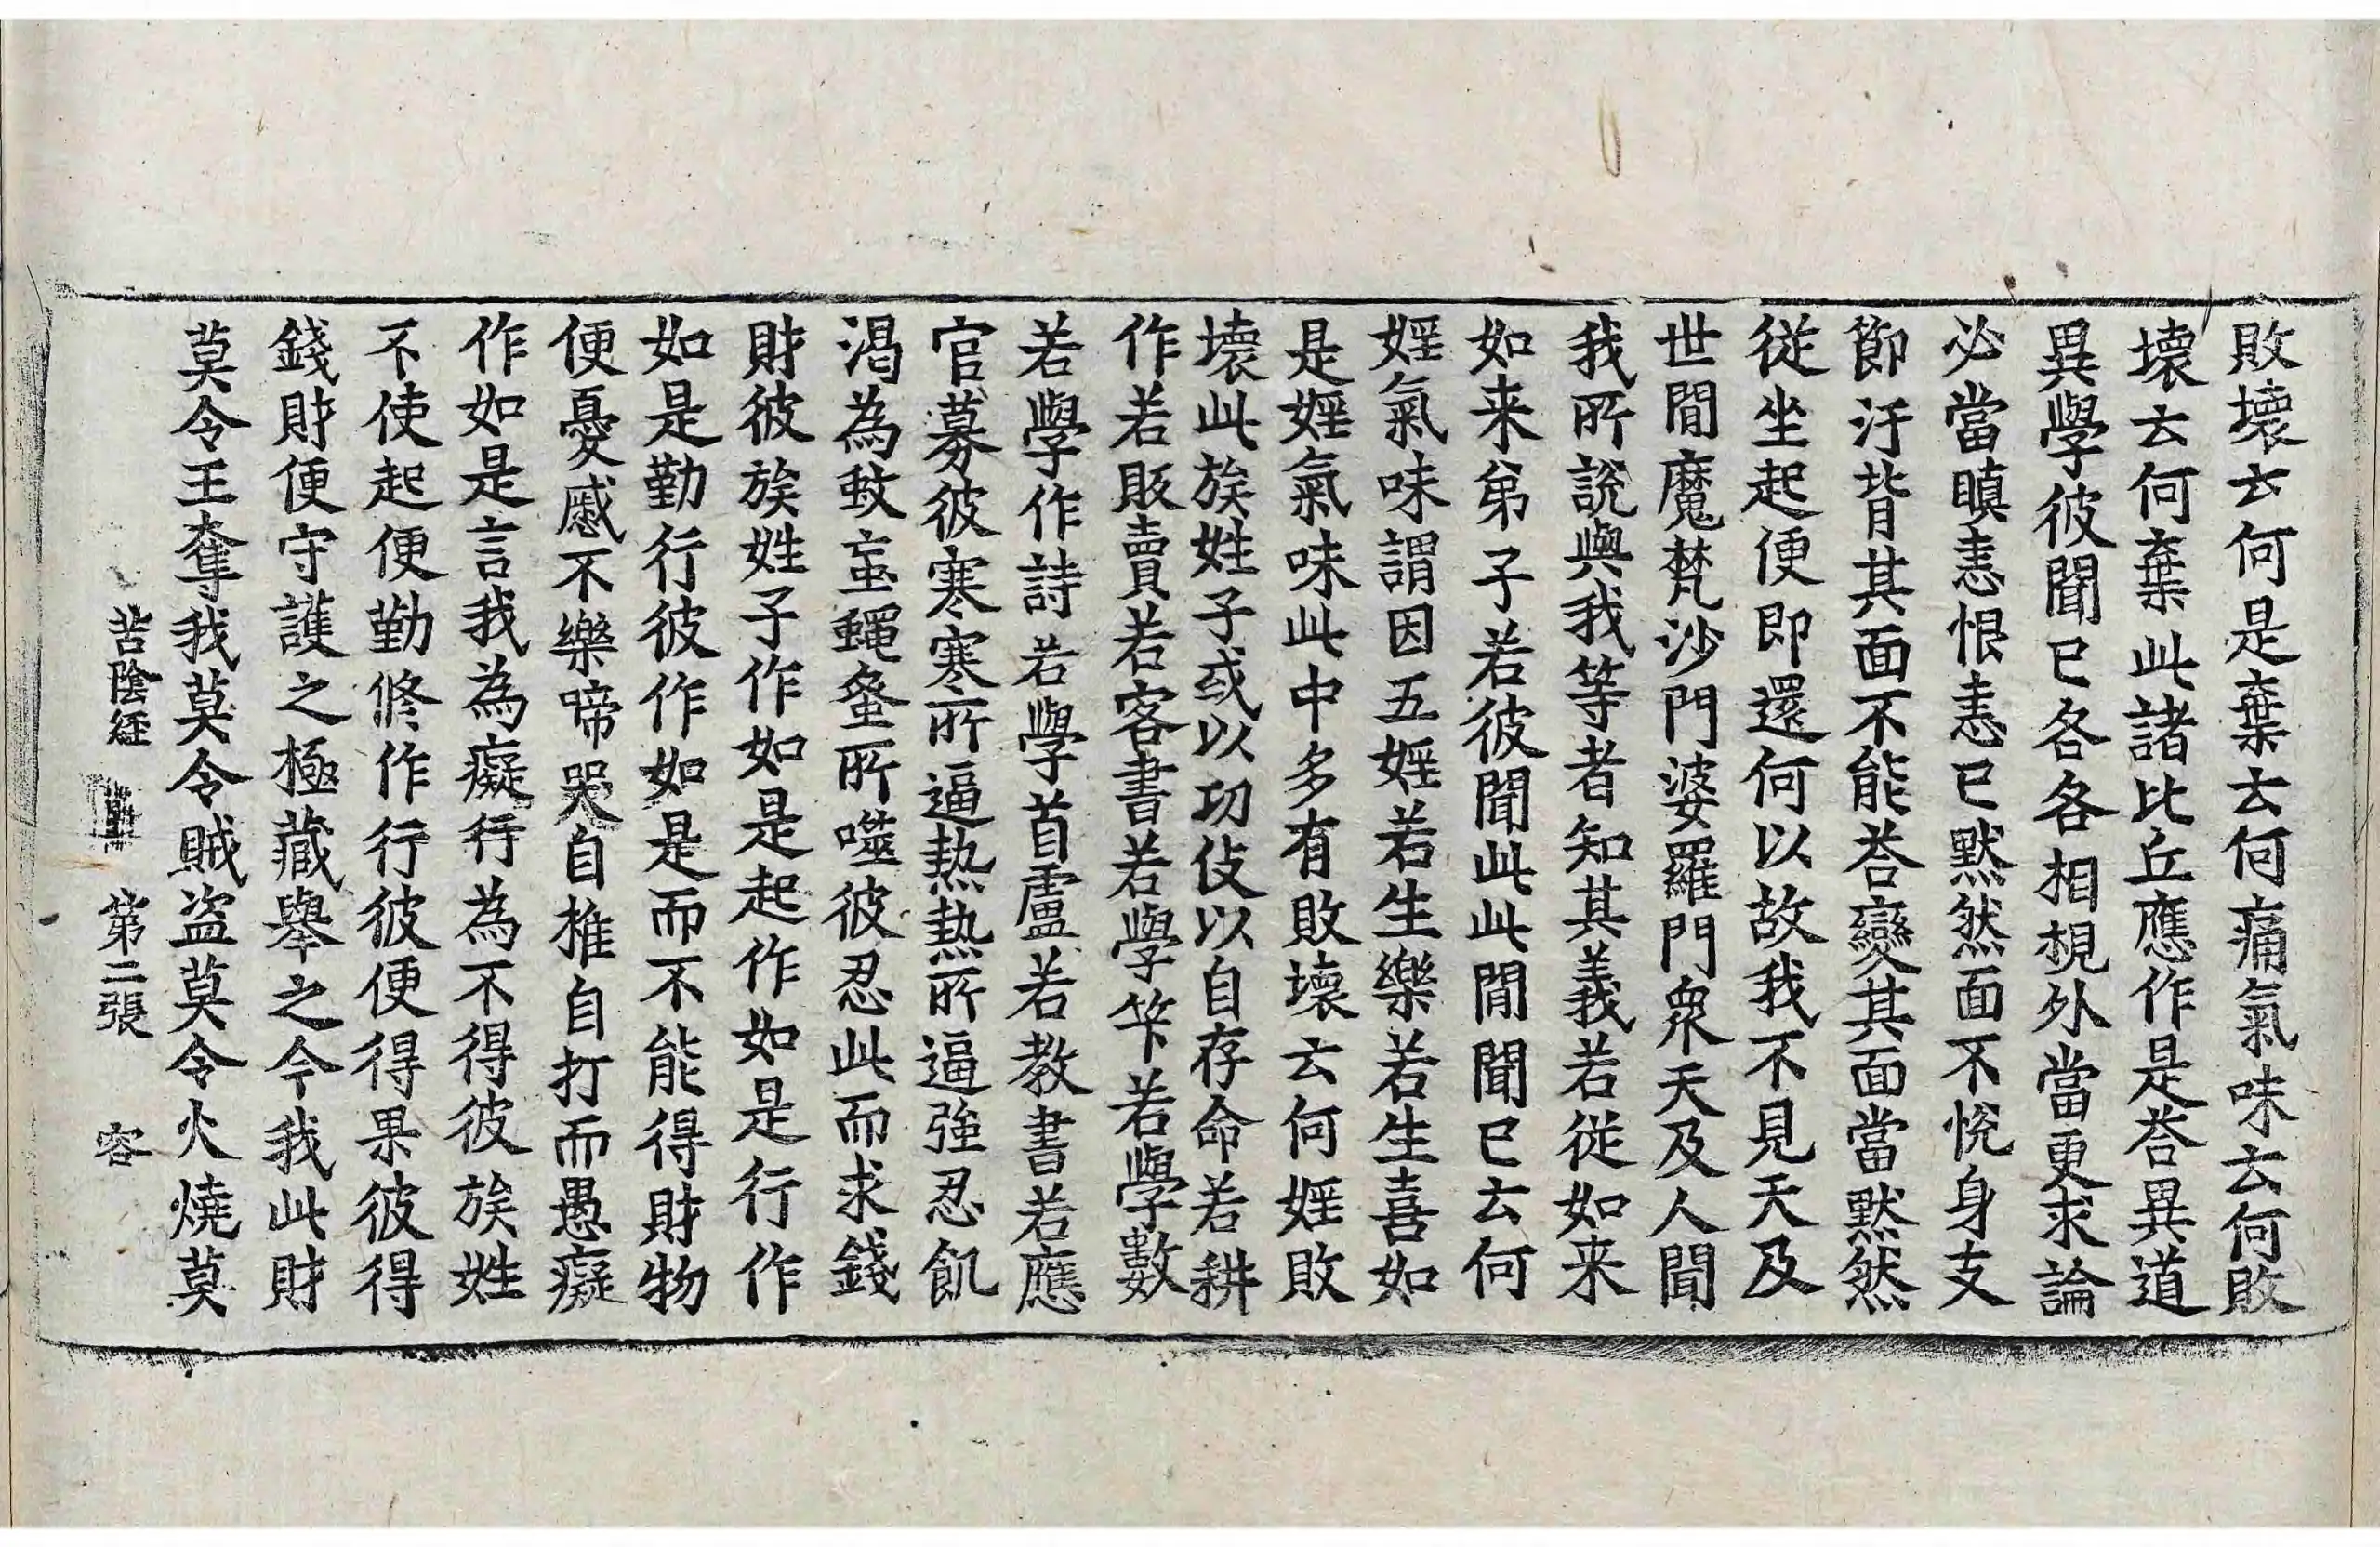 敗壞云何是棄云何痛氣味云何敗
壞云何棄此諸比丘應作是荅異道
異學彼聞已各各相視外當更求論
必當瞋恚恨恚已默然面不悅身支
節汙背其面不能荅變其面當默然
従坐起便即還何以故我不見天及
世間魔梵沙門婆羅門衆天及人聞
我所說與我等者知其義若従如来
如来弟子若彼聞此此間聞已云何
婬氣味謂因五婬若生樂若生喜如
是婬氣味此中多有敗壞云何婬敗
壞此族姓子或以功伎以自存命若耕
作若販賣若客書若學竿若學數
若學作詩若學首盧若教書若應
官募彼寒寒所逼熱熱所逼強忍飢
渴為蚊䖟蠅螿所噬彼忍此而求錢
財彼族姓子作如是起作如是行作
如是勤行彼作如是而不能得財物
便憂慼不樂啼哭自椎自打而愚癡
作如是言我為癡行為不得彼族姓
不使起便勤修作行彼便得果彼得
錢財便守護之極藏舉之令我此財
莫令王奪我莫令賊盗莫令火燒莫
苦陰經 第二張 容